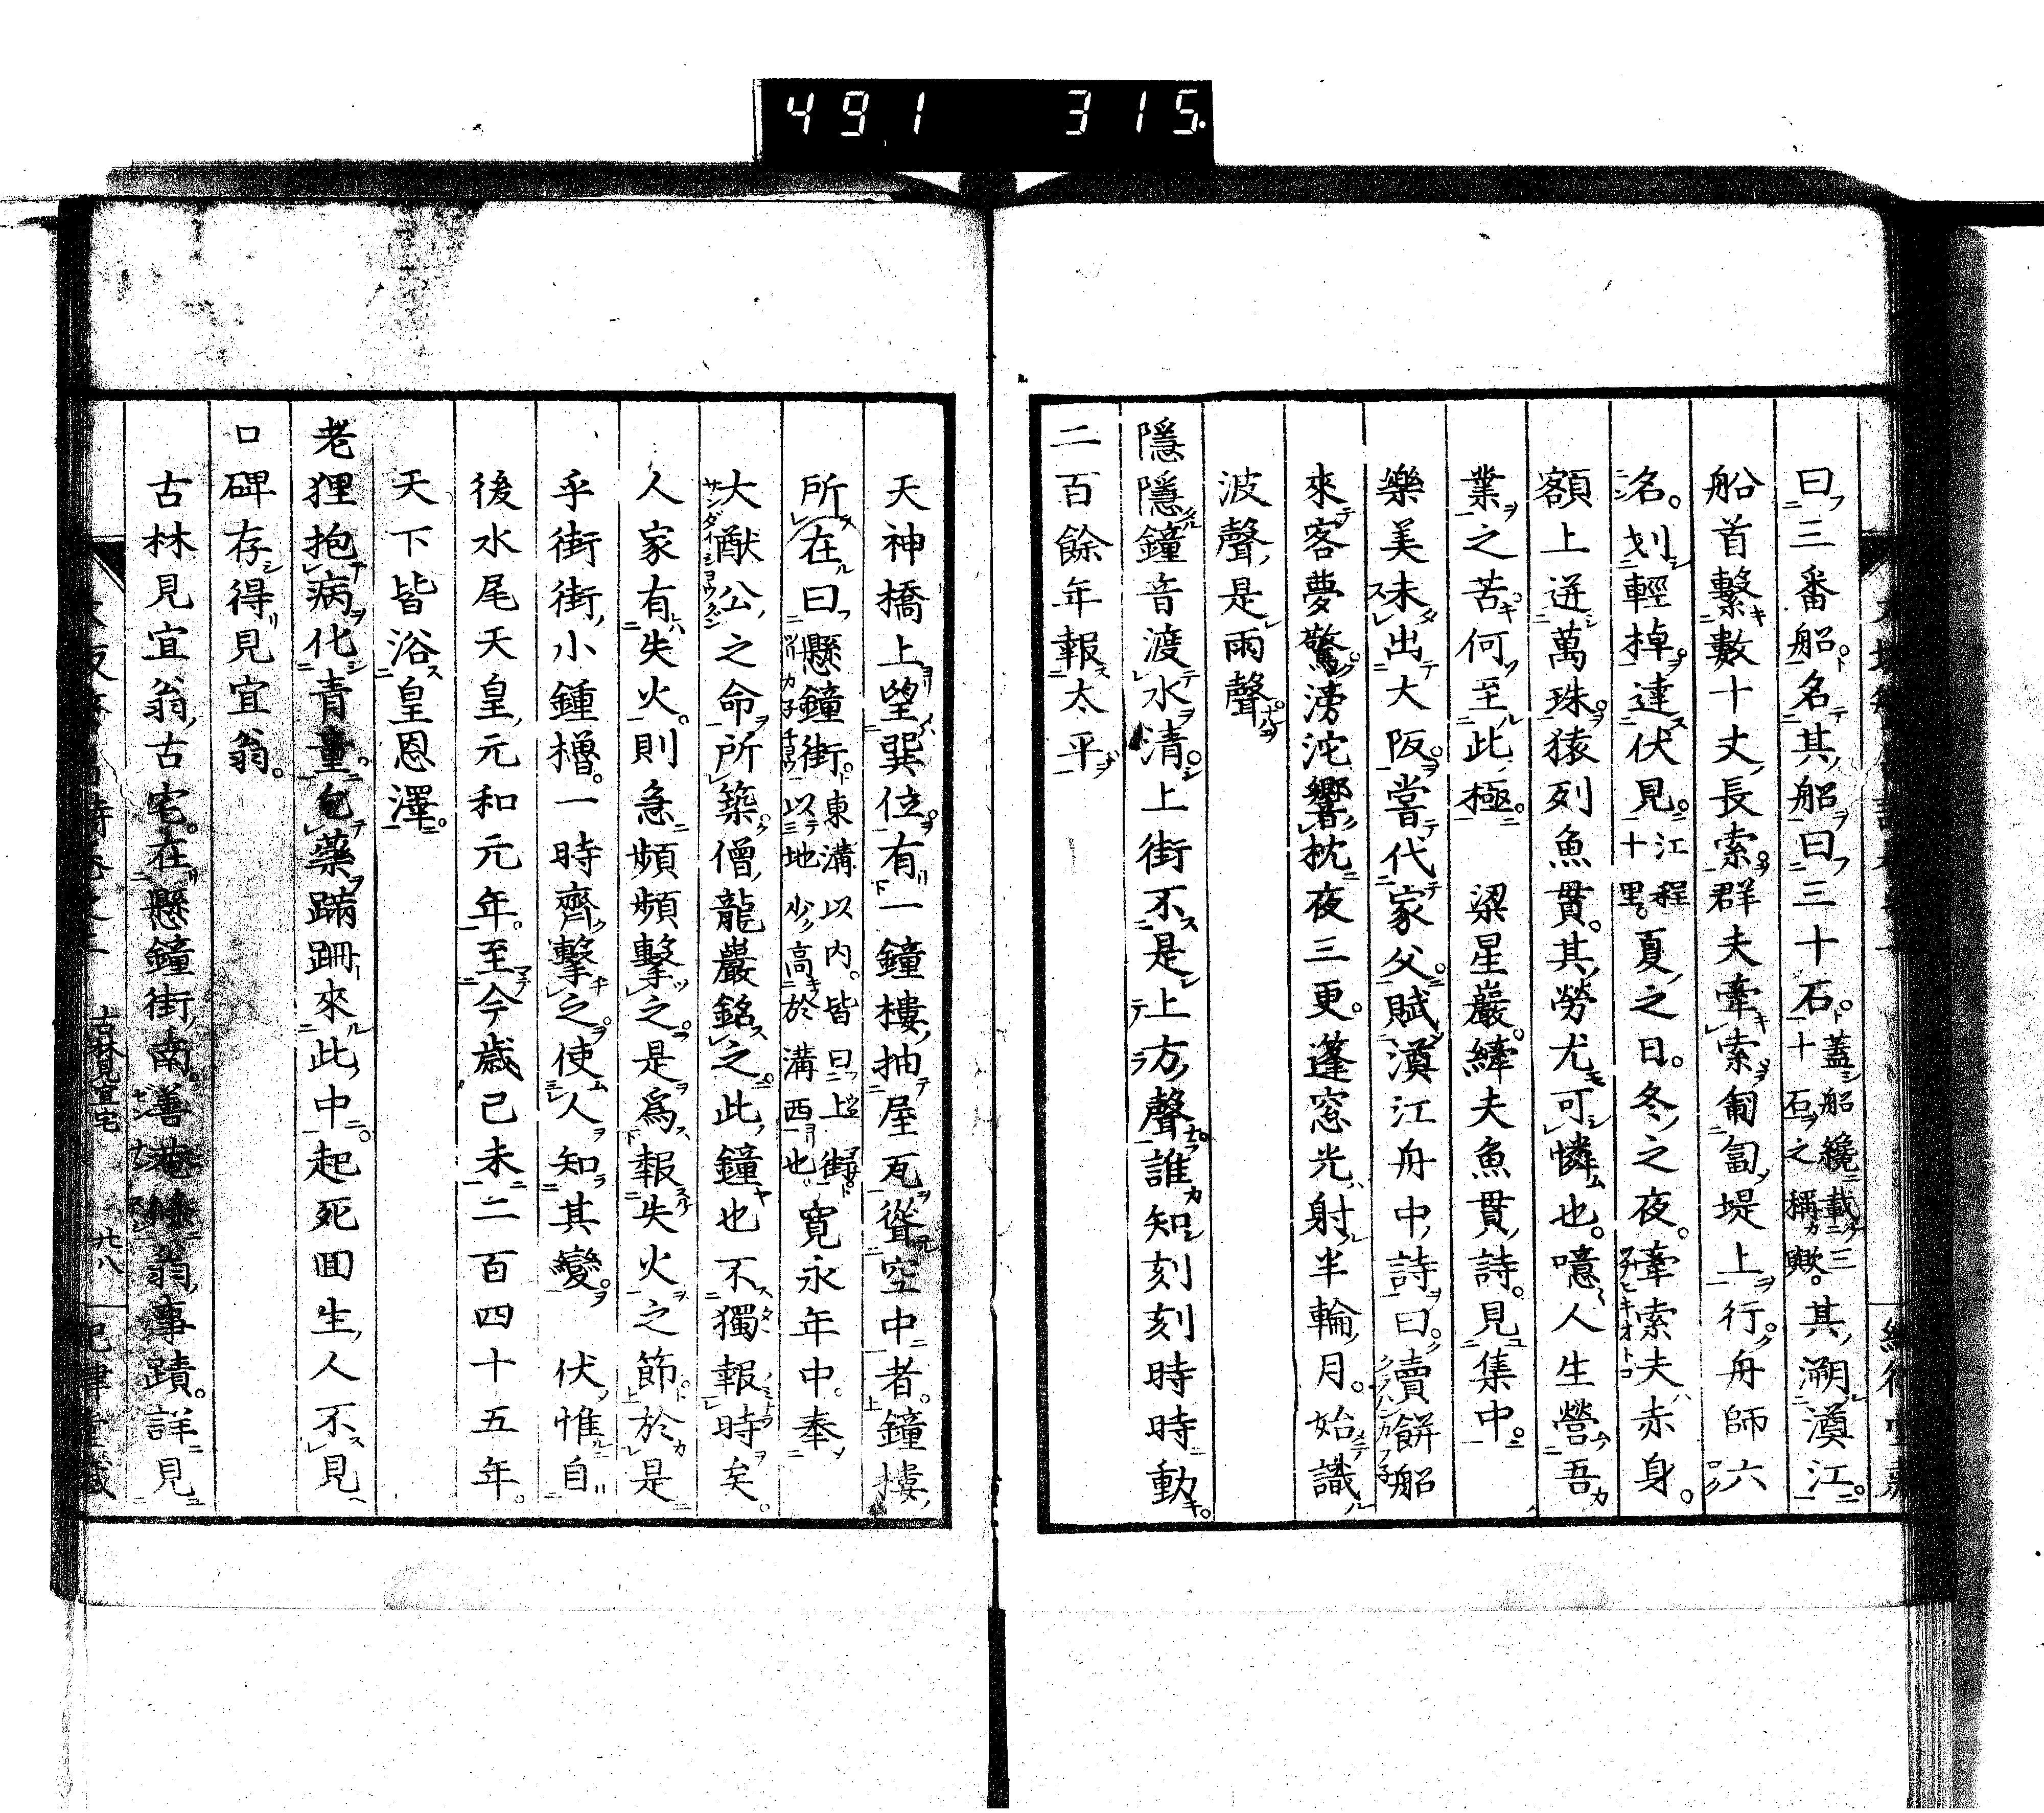 491 315
曰三番船名其船曰三十石蓋船纔載三十石之稱歟其溯澱江
船首繫數十丈長索群夫牽索匍匐堤上行舟師六
洺划輕棹達伏見江程十里夏之日冬之夜牽索夫赤身
額上迸萬珠猿列魚貫其勞尤可憐也噫人生營吾
業之苦何至此極 梁星巖縴夫魚貫詩見集中
樂美未出大阪當代家父賦澱江舟中詩曰賣餅船
來客夢驚滂沱響枕夜三更蓬窓光射半輪月始識
波聲是雨聲
隱隱鐘音渡水清上街不是上方聲誰知刻刻時時動
二百餘年報太平
天神橋上望巽位有一鐘樓抽屋瓦聳空中者鐘樓
所在曰懸鐘街東溝以内皆曰上街以地少高於溝西也寬永年中奉
大猷公之命所築僧龍巖銘之此鐘也不獨報時矣
人家有失火則急頻頻擊之是爲報失火之節於是
乎街街小鍾櫓一時齊擊之使人知其變 伏惟自
後水尾天皇元和元年至今歲己未二百四十五年
天下皆浴皇恩澤
老狸抱病化青童乞藥蹣跚來此中起死回生人不見
口碑存得見宜翁
古林見宜翁古宅在懸鐘街南善菴條翁事蹟詳見
古林見宜宅 廿八